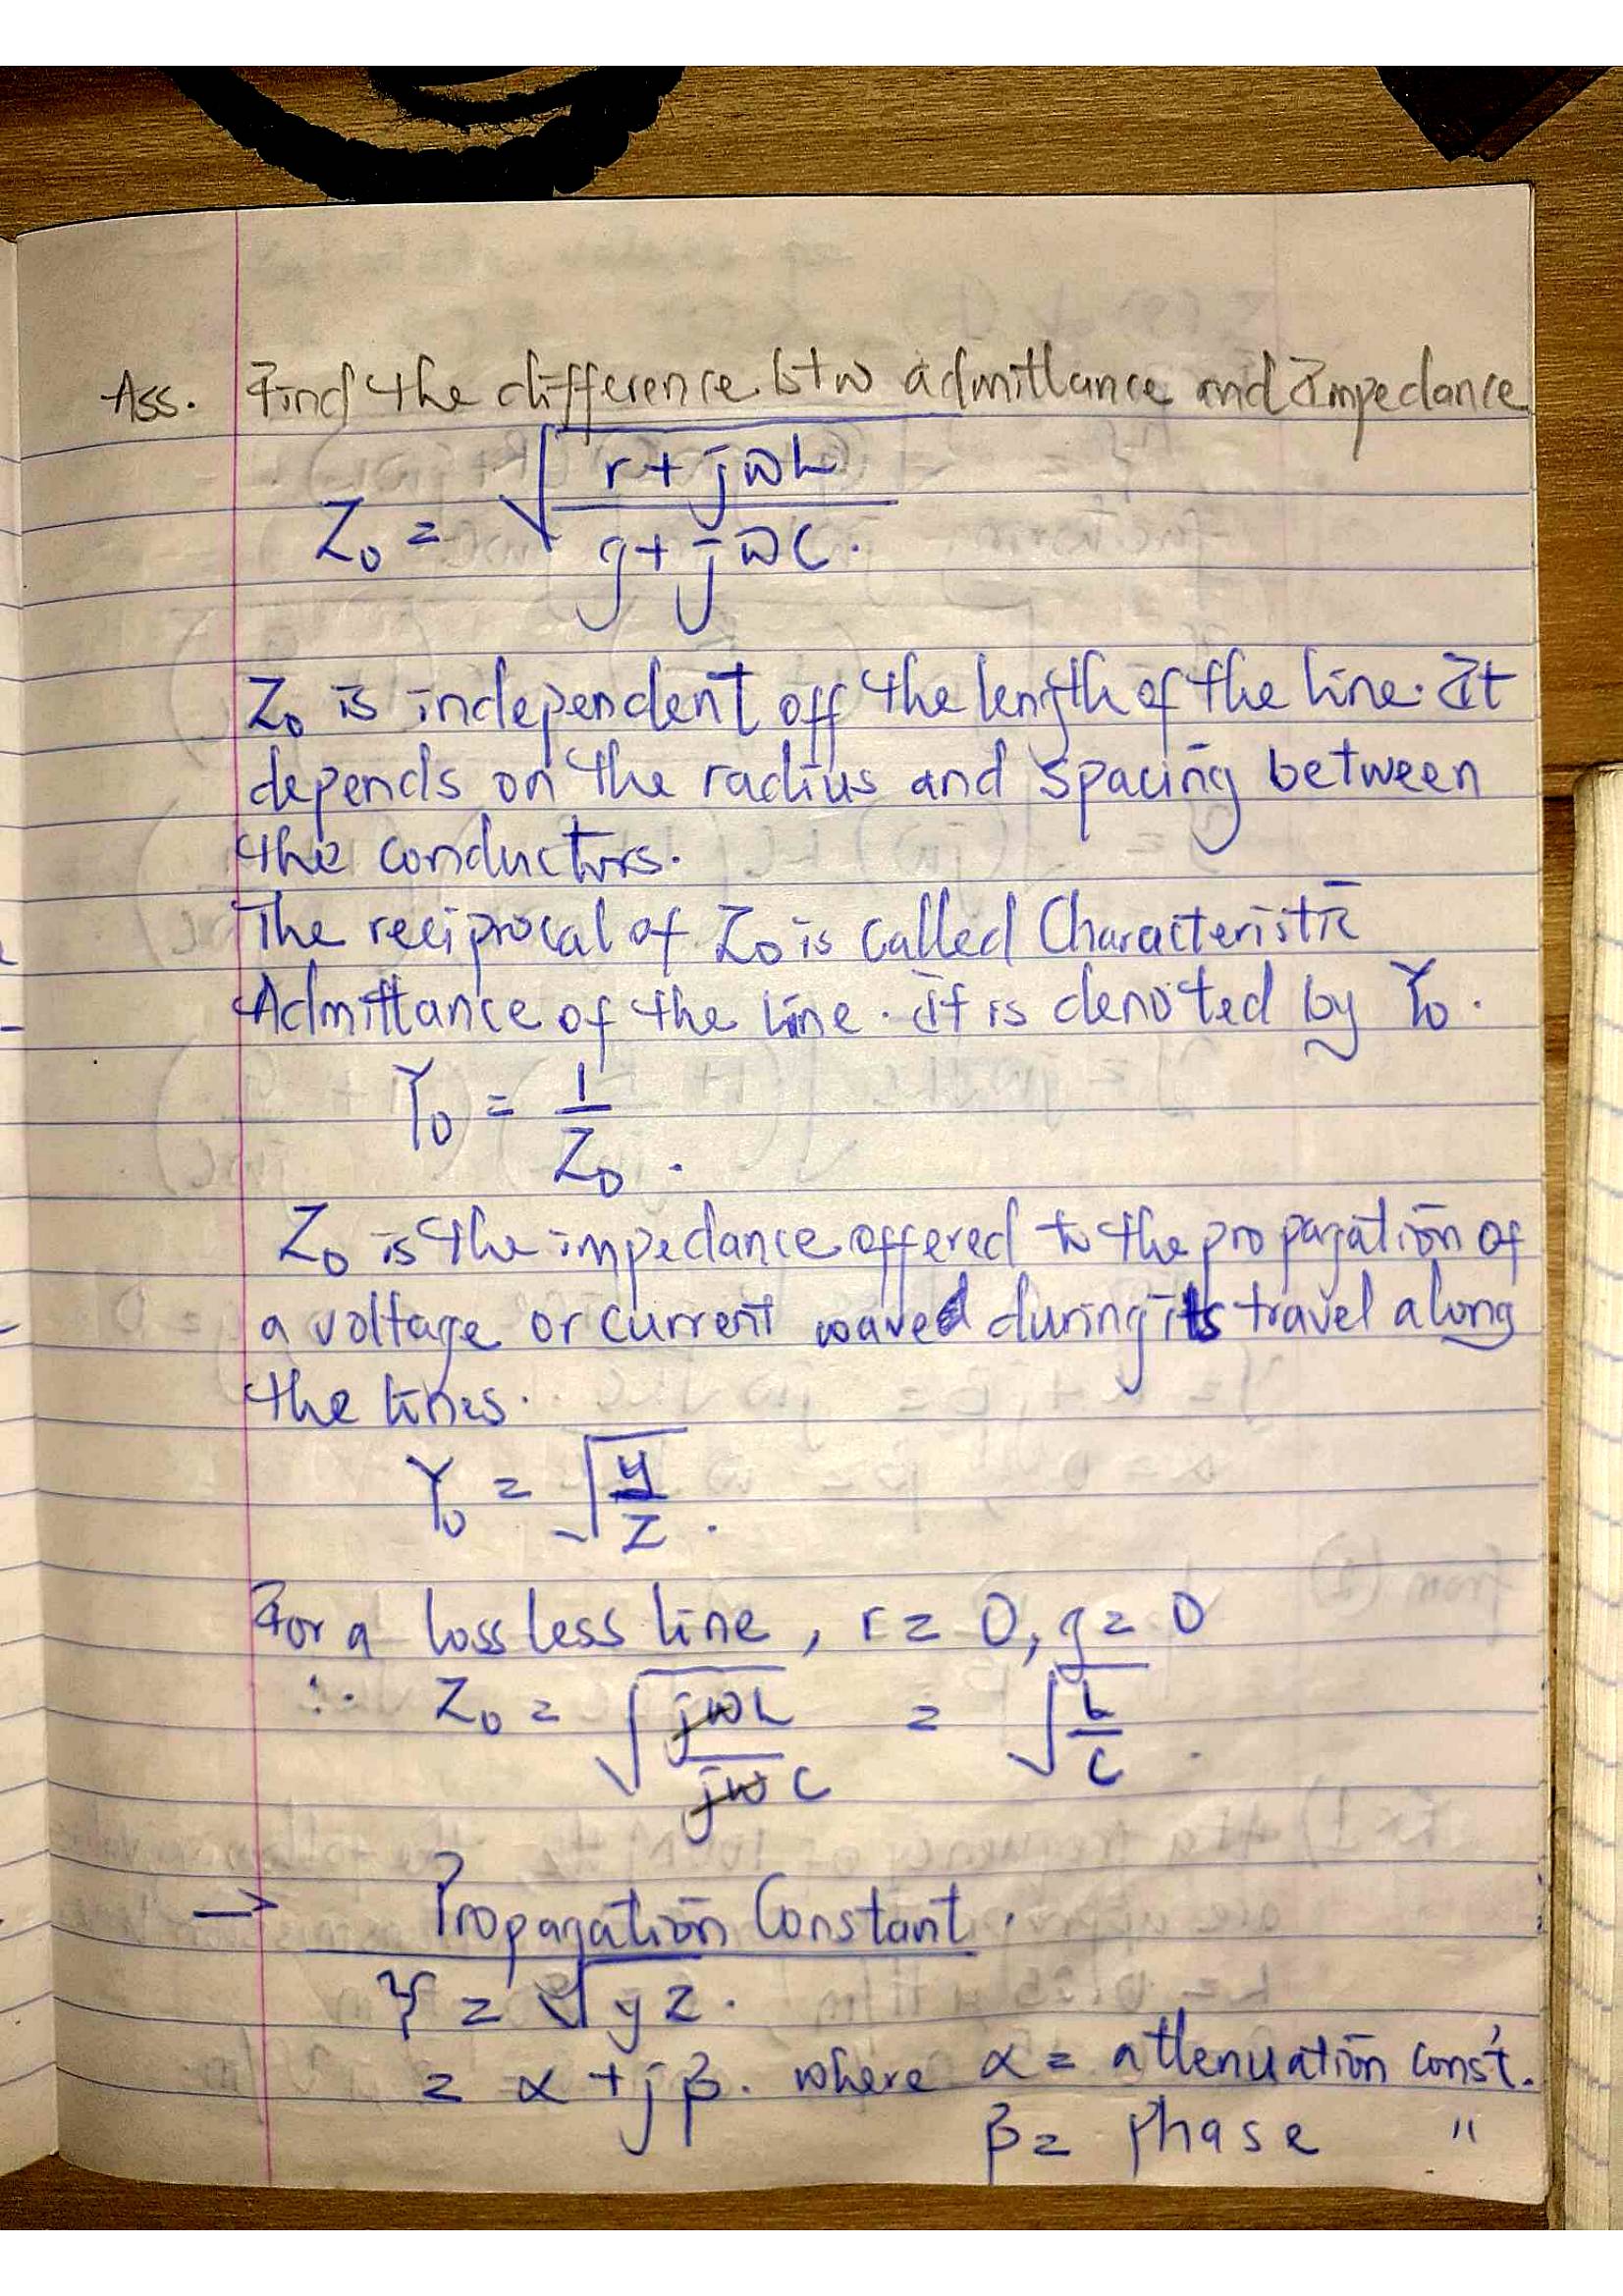 Ass. Find the difference btw admittance and Impedance
Z₀ = √((r + jωL)/(g + jωC)).
Z₀ is independent off the length of the line. It
depends on the radius and spacing between
the conductors.
The reciprocal of Z₀ is called Characteristic
Admittance of the line. It is denoted by Y₀.
Y₀ = 1/Z₀.
Z₀ is the impedance offered to the propagation of
a voltage or current waved during its travel along
the lines.
Y₀ = √(y/z).
For a loss less line, r = 0, g = 0
∴ Z₀ = √(jωL/jωC) = √(L/C).
→ Propagation Constant.
γ = √yz.
= α + jβ. where α = attenuation const.
β = phase "